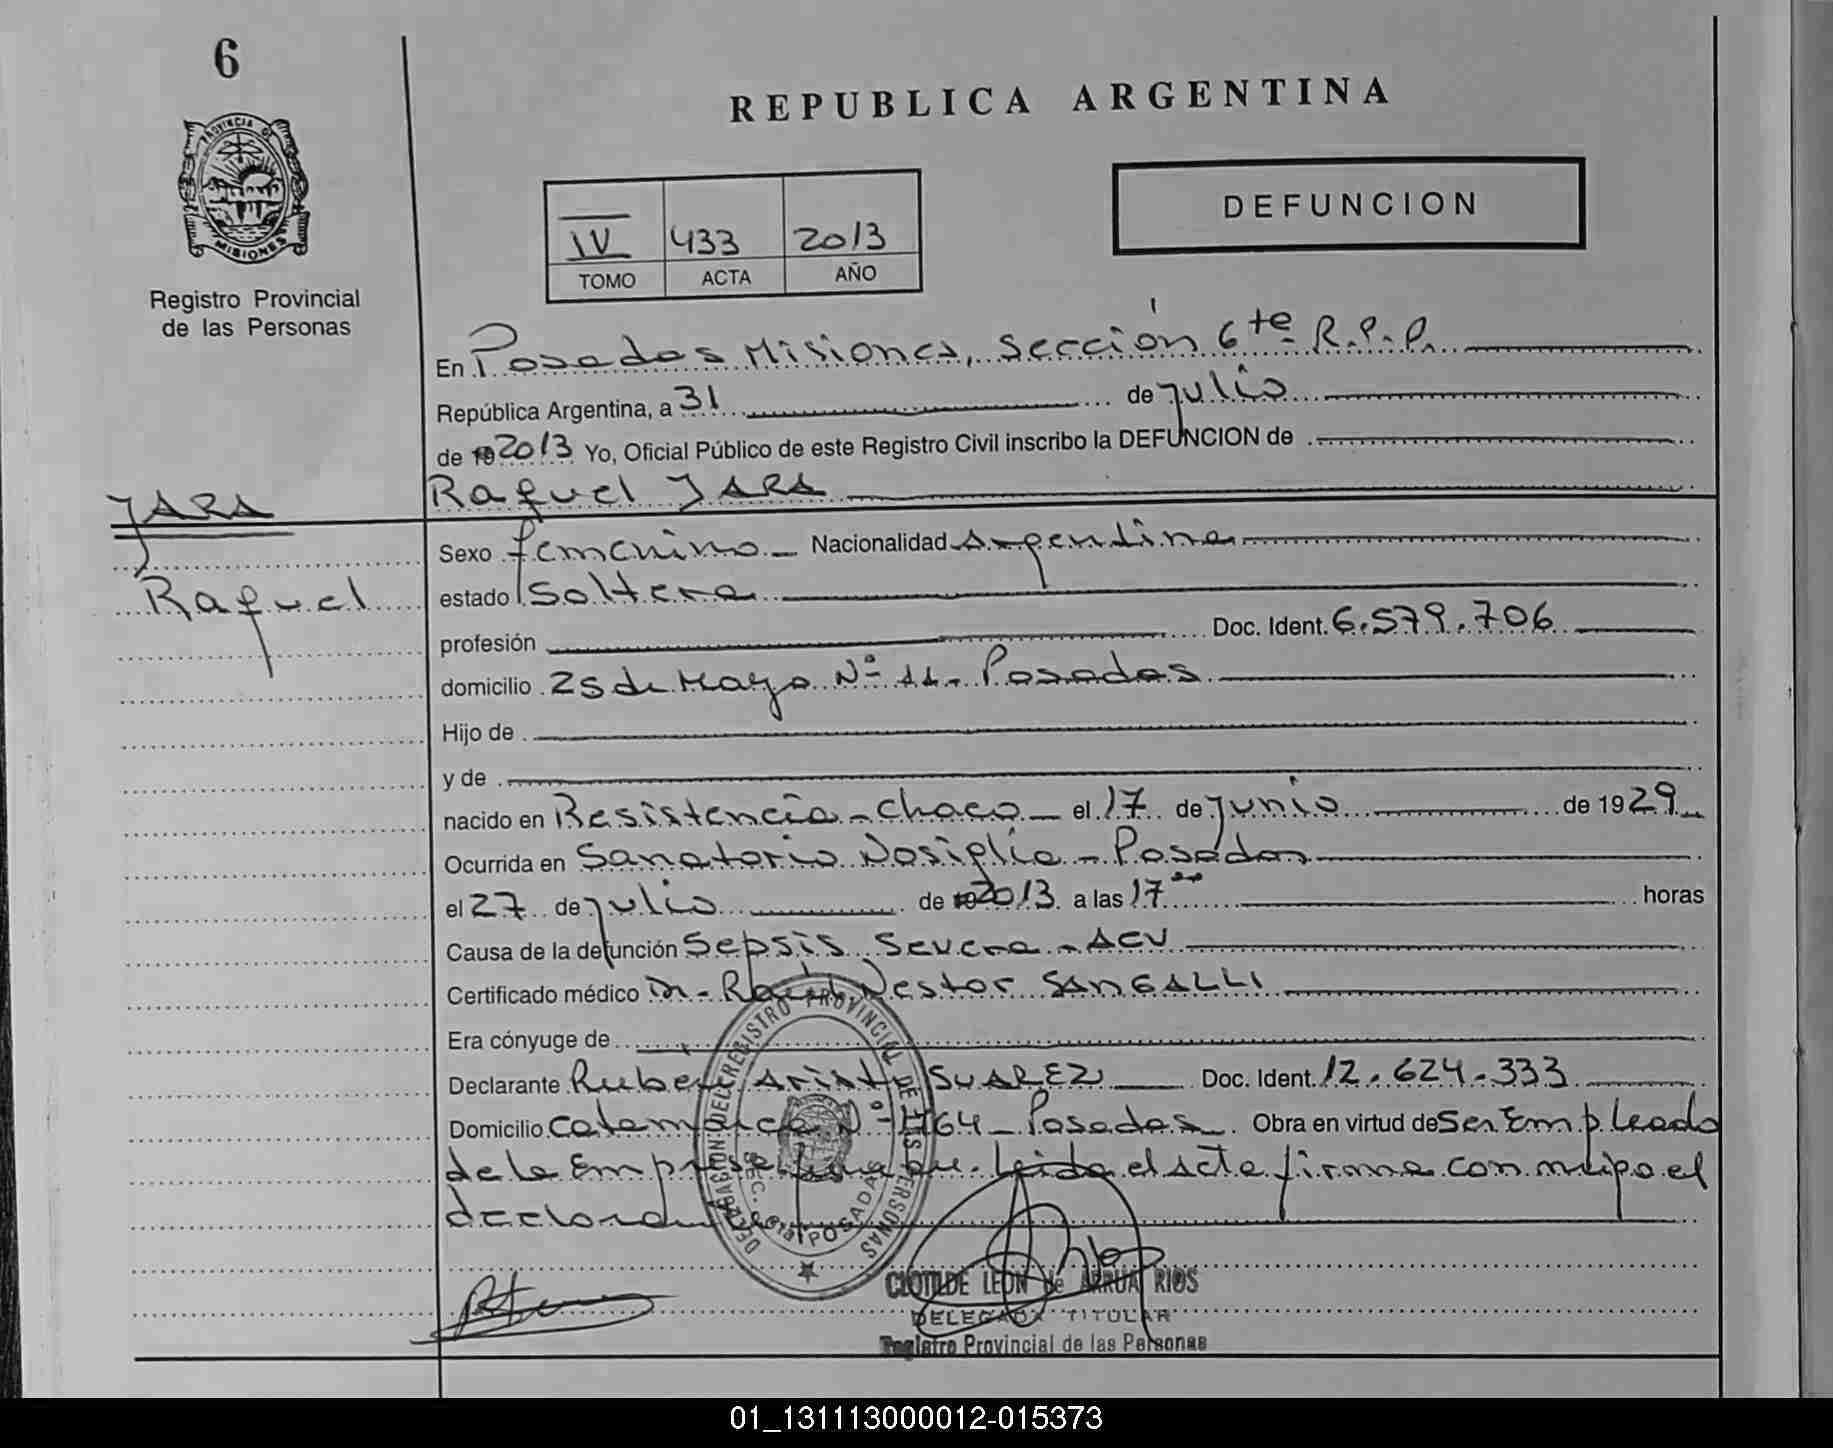 6
REPUBLICA ARGENTINA
PROVINCIA DE
MISIONES
Registro Provincial
de las Personas
DEFUNCION
IV 433 2013
TOMO ACTA AÑO
En Posadas Misiones, Sección 6te R.P.P.
República Argentina, a 31 de julio
de 19 2013 Yo, Oficial Público de este Registro Civil inscribo la DEFUNCION de
Raquel JARA
JARA
Raquel
Sexo femenino Nacionalidad Argentina
estado Soltera
profesión Doc. Ident. 6.579.706
domicilio 25 de Mayo Nº 11 - Posadas
Hijo de
y de
nacido en Resistencia - Chaco - el 17 de junio de 1929
Ocurrida en Sanatorio Nosiglia - Posadas
el 27 de julio de 19 2013 a las 17 00 horas
Causa de la defunción Sepsis Severa - ACV
Certificado médico Dr. Raúl Nestor SANGALLI
Era cónyuge de
Declarante Ruben SUAREZ Doc. Ident. 12.624.333
Domicilio Catamarca Nº 64 - Posadas. Obra en virtud de Ser Empleado
de la Empresa Leida el Acta firma conmigo el
declarante
DELEGACION DEL REGISTRO PROVINCIAL DE LAS PERSONAS
SEC. 6ta POSADAS
CLOTILDE LEON de ARRUA RIOS
DELEGADA TITULAR
Registro Provincial de las Personas
01_131113000012-015373